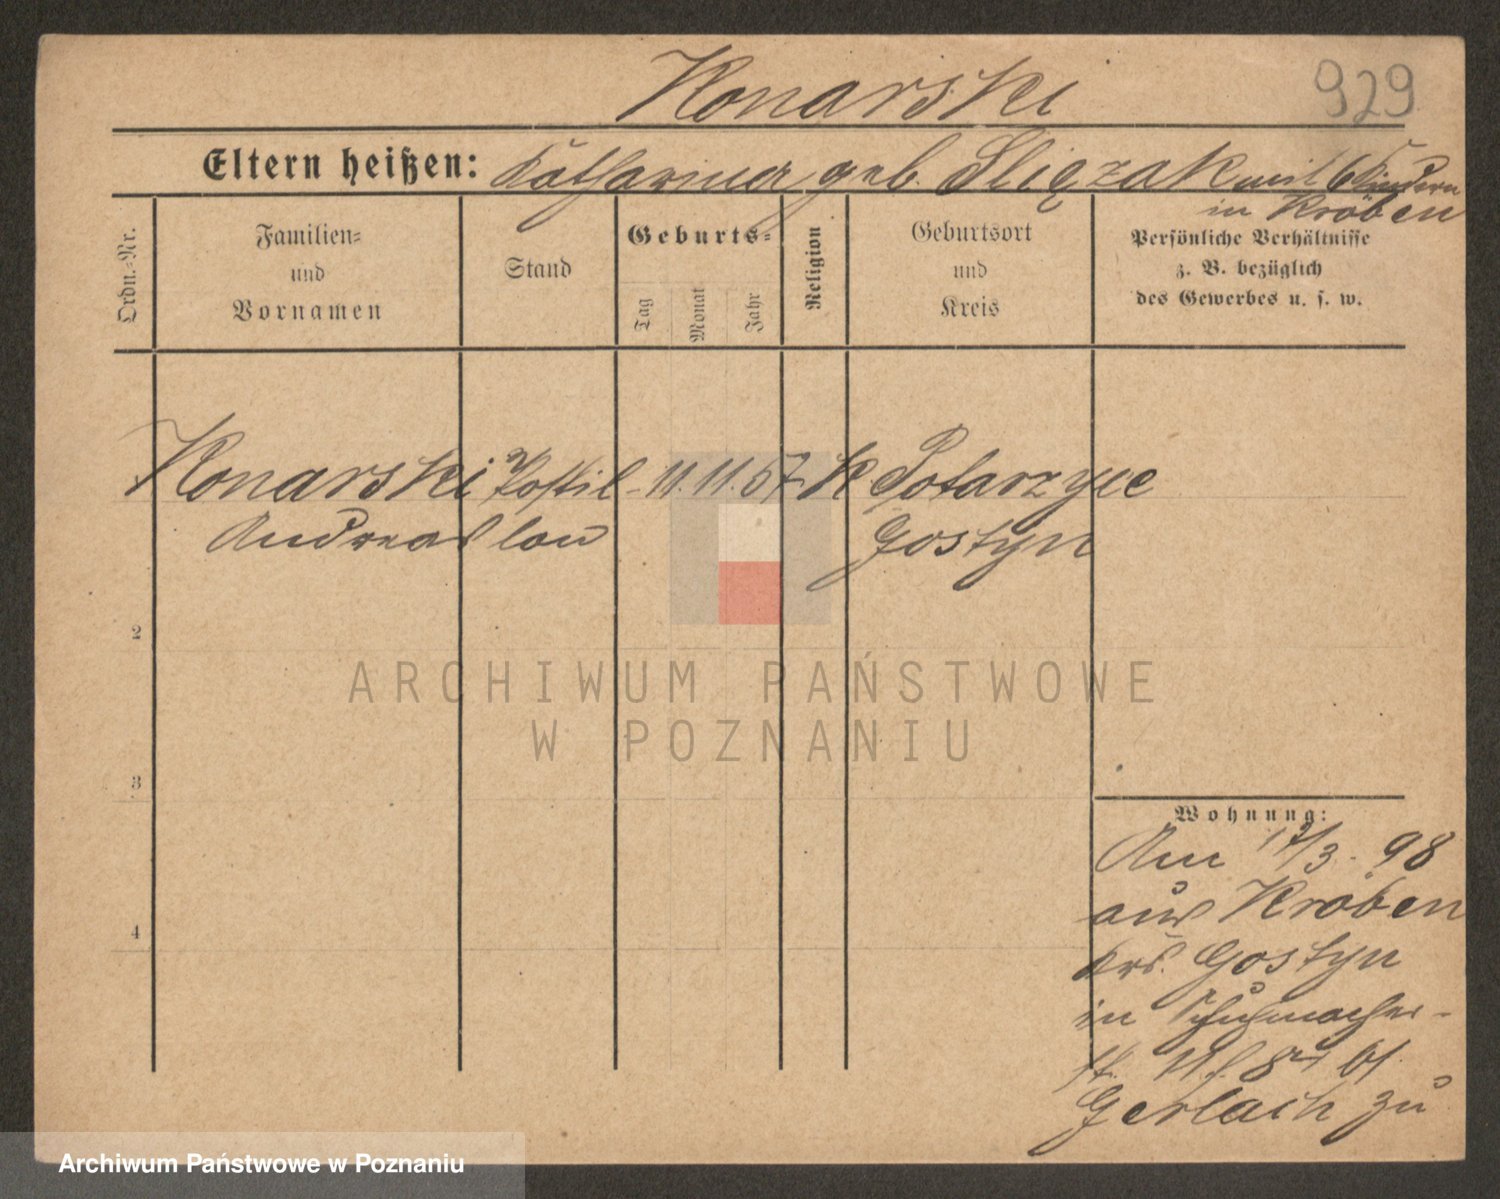 Konarski
929
Eltern heißen: Katharina geb. Slięzak mit 6 Kindern
in Kröben
Ordn.-Nr.
Familien-
und
Vornamen
Stand
Geburts-
Tag
Monat
Jahr
Religion
Geburtsort
und
Kreis
Persönliche Verhältnisse
z. B. bezüglich
des Gewerbes u. s. w.
Konarski Postil- 11. 11. 67 K Potarzyce
Andreas lon Gostyn
2
3
4
Wohnung:
Am 17/3. 98
aus Kröben
Krs. Gostyn
in Schuhmacher-
st. 8 bei
Gerlach zu
ARCHIWUM PAŃSTWOWE
W POZNANIU
Archiwum Państwowe w Poznaniu